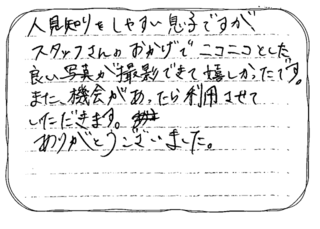 人見知りをしやすい息子ですが
スタッフさんのおかげでニコニコとした
良い写真が撮影できて嬉しかったです。
また、機会があったら利用させて
いただきます。
ありがとうございました。